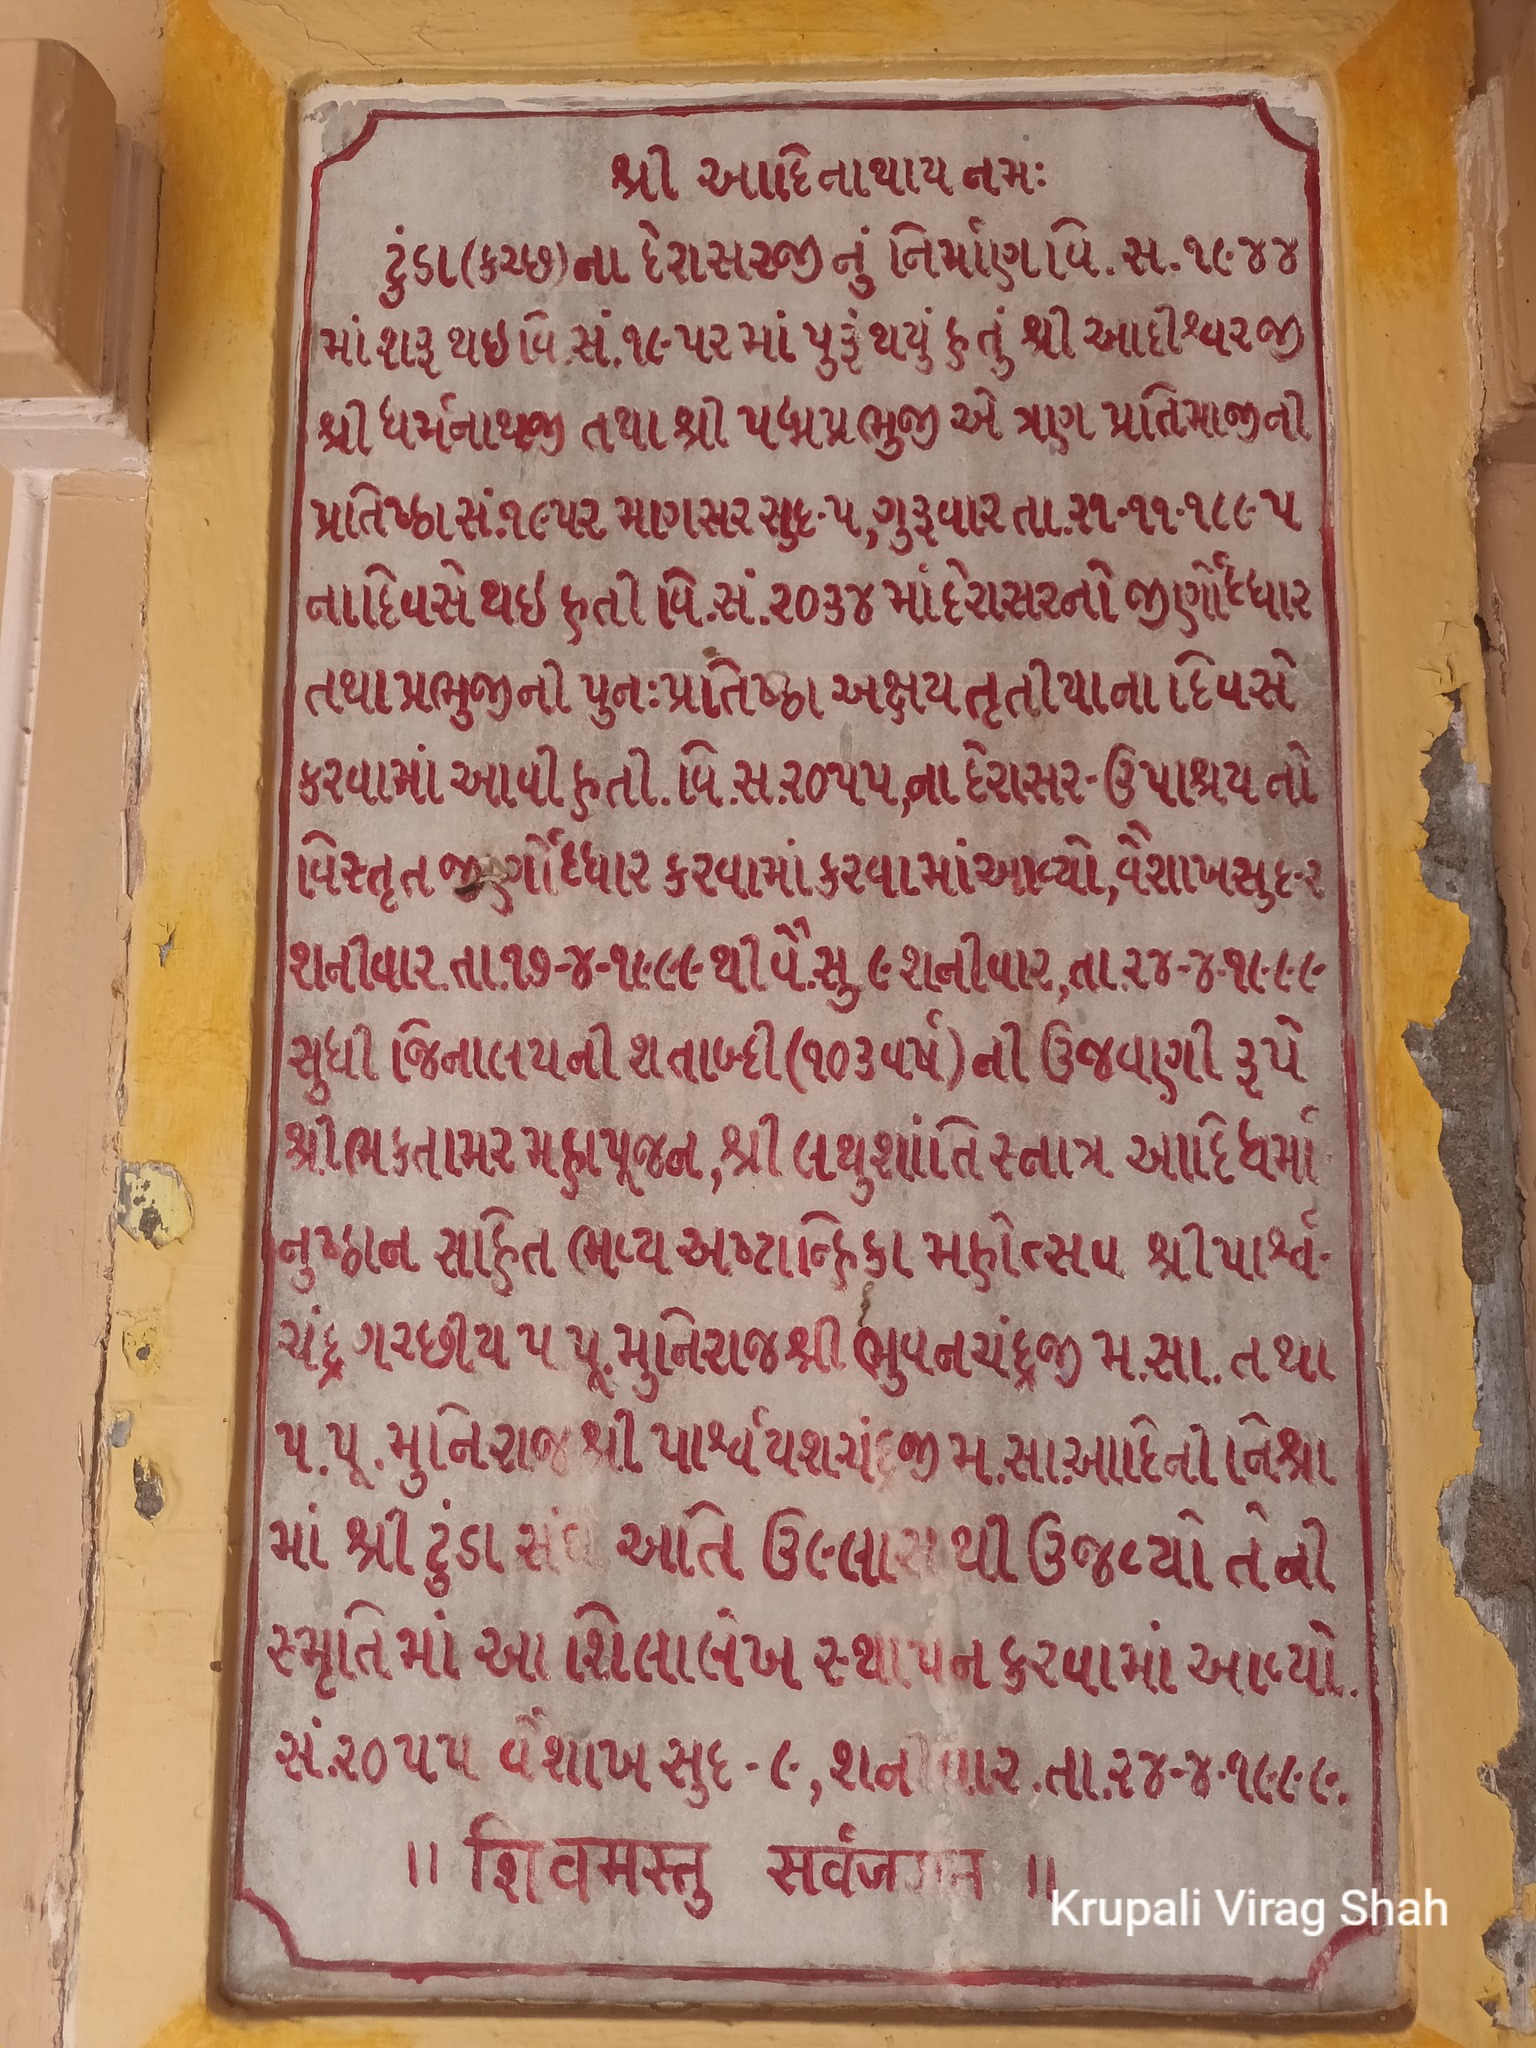 શ્રી આદિનાથાય નમઃ
ટુંડા(કચ્છ)ના દેરાસરજીનું નિર્માણ વિ.સ.૧૯૪૪
માં શરૂ થઇ વિ.સં.૧૯૫૨માં પુરૂં થયું હતું શ્રી આદીશ્વરજી
શ્રી ધર્મનાથજી તથા શ્રી પદ્મપ્રભુજી એ ત્રણ પ્રતિમાજીની
પ્રતિષ્ઠા સં.૧૯૫૨ માગસર સુદ-૫,ગુરૂવાર તા.૨૧-૧૧-૧૮૯૫
ના દિવસે થઇ હતી વિ.સં.૨૦૩૪ માં દેરાસરનો જીર્ણોદ્ધાર
તથા પ્રભુજીની પુનઃપ્રતિષ્ઠા અક્ષય તૃતીયાના દિવસે
કરવામાં આવી હતી.વિ.સ.૨૦૫૫,ના દેરાસર-ઉપાશ્રય નો
વિસ્તૃત જીર્ણોદ્ધાર કરવામાં કરવામાં આવ્યો,વૈશાખ સુદ-૨
શનીવાર તા.૧૭-૪-૧૯૯૯ થી વૈ.સુ ૯ શનીવાર,તા.૨૪-૪-૧૯૯૯
સુધી જિનાલયની શતાબ્દી(૧૦૩ વર્ષ)ની ઉજવાણી રૂપે
શ્રી ભકતામર મહાપૂજન,શ્રી લઘુશાંતિ સ્નાત્ર આદિ ધર્મા
નુષ્ઠાન સહિત ભવ્ય અષ્ટાન્હિકા મહોત્સવ શ્રી પાર્શ્વ-
ચંદ્ર ગચ્છીય પ પૂ.મુનિરાજ શ્રી ભુવનચંદ્રજી મ.સા. તથા
પ.પૂ.મુનિરાજ શ્રી પાર્શ્વયશચંદ્રજી મ.સા.આદિની નિશ્રા
માં શ્રી ટુંડા સંઘે અતિ ઉલ્લાસ થી ઉજવ્યો તેની
સ્મૃતિ માં આ શિલાલેખ સ્થાપન કરવામાં આવ્યો.
સં.૨૦૫૫ વૈશાખ સુદ-૯,શનીવાર.તા.૨૪-૪-૧૯૯૯.
॥ શિવમસ્તુ સર્વજગત ॥
Krupali Virag Shah